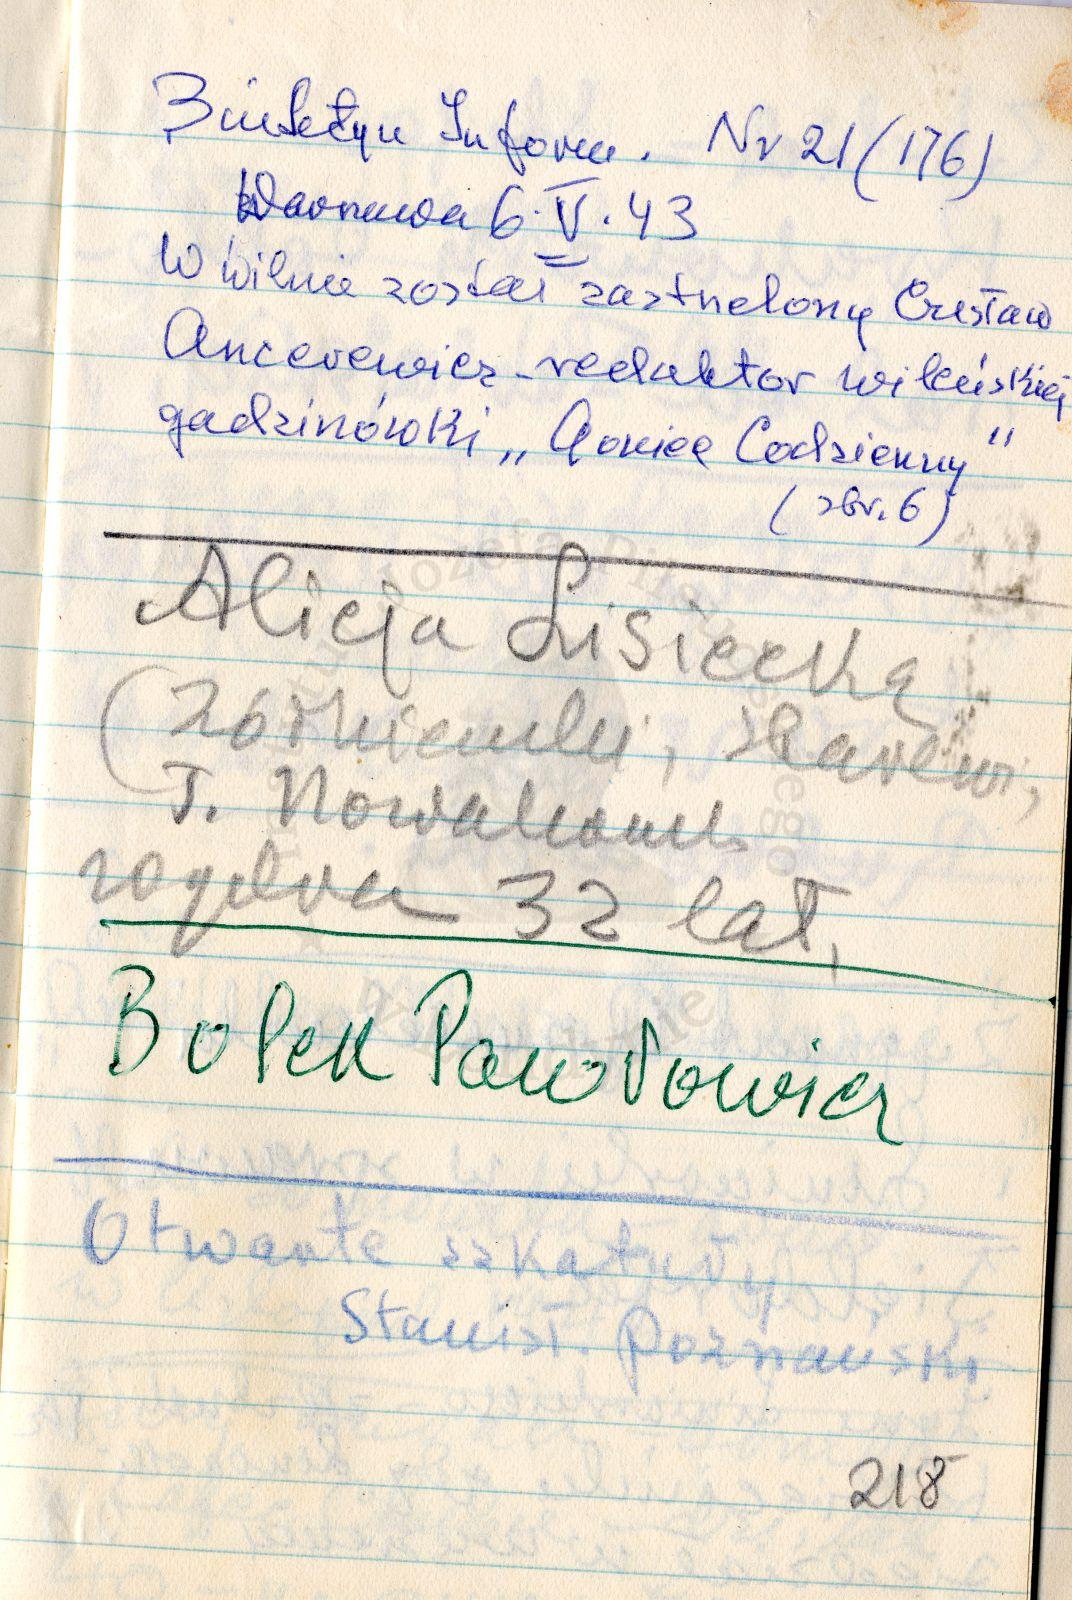 Biuletyn Inform. Nr 21 (176)
Warszawa 6.V.43
W Wilnie został zastrzelony Czesław
Ancerewicz - redaktor wileńskiej
gadzinówki „Goniec Codzienny"
(str. 6)
Alicja Lisiecka
(Żółkiewski,
T. Nowakowski
32 lat,
Bolek Pawłowicz
Otwarte szkatuły
Stanisł. Poznański
218